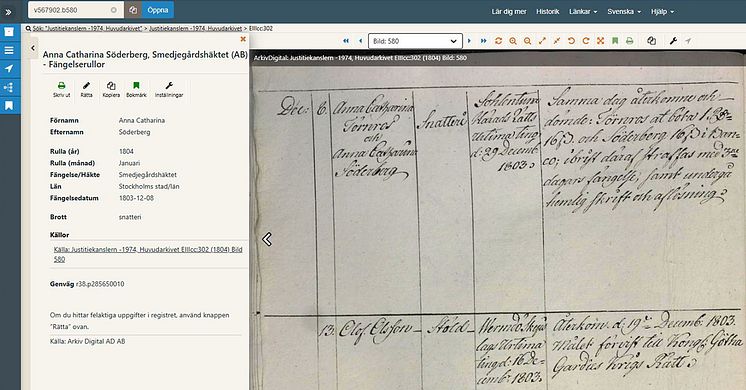 v567902.b580
Öppna
Lär dig mer
Historik
Länkar
Svenska
Hjälp
Sök: "Justitiekanslern -1974, Huvudarkivet" > Justitiekanslern -1974, Huvudarkivet > EIIIcc:302
Anna Catharina Söderberg, Smedjegårdshäktet (AB)
- Fängelserullor
Skriv ut
Rätta
Kopiera
Bokmärk
Inställningar
Förnamn Anna Catharina
Efternamn Söderberg
Rulla (år) 1804
Rulla (månad) Januari
Fängelse/Häkte Smedjegårdshäktet
Län Stockholms stad/län
Fängelsedatum 1803-12-08
Brott snatteri
Källor
Källa: Justitiekanslern -1974, Huvudarkivet EIIIcc:302 (1804) Bild
580
Genväg r38.p285650010
Om du hittar felaktiga uppgifter i registret, använd knappen
"Rätta" ovan.
Källa: Arkiv Digital AD AB
Bild: 580
ArkivDigital: Justitiekanslern, Huvudarkivet EIIIcc:302 (1804) Bild: 580
Dec: 6. Anna Catharina
Törnros
och
Anna Catharina
Söderberg
Snatteri
Sollentuna
Härads Rätts
ting
d: 29 Decemb.
1803.
Samma dag återkomne och
domde: Törnros at böta
16 ſ. och Söderberg 16 ſ i Ban-
co; i brist däraf straffas med
dagars fängelse, samt undergå
hemlig skrift och aflösning.
13. Olof Olsson
Stöld
Wermdö Skep
lags Urtima
ting d: 16 De-
cemb: 1803.
Återkom. d: 19 Decemb: 1803.
Målet förvist till Kongl. Götha
Gardes Krigs Rätt.